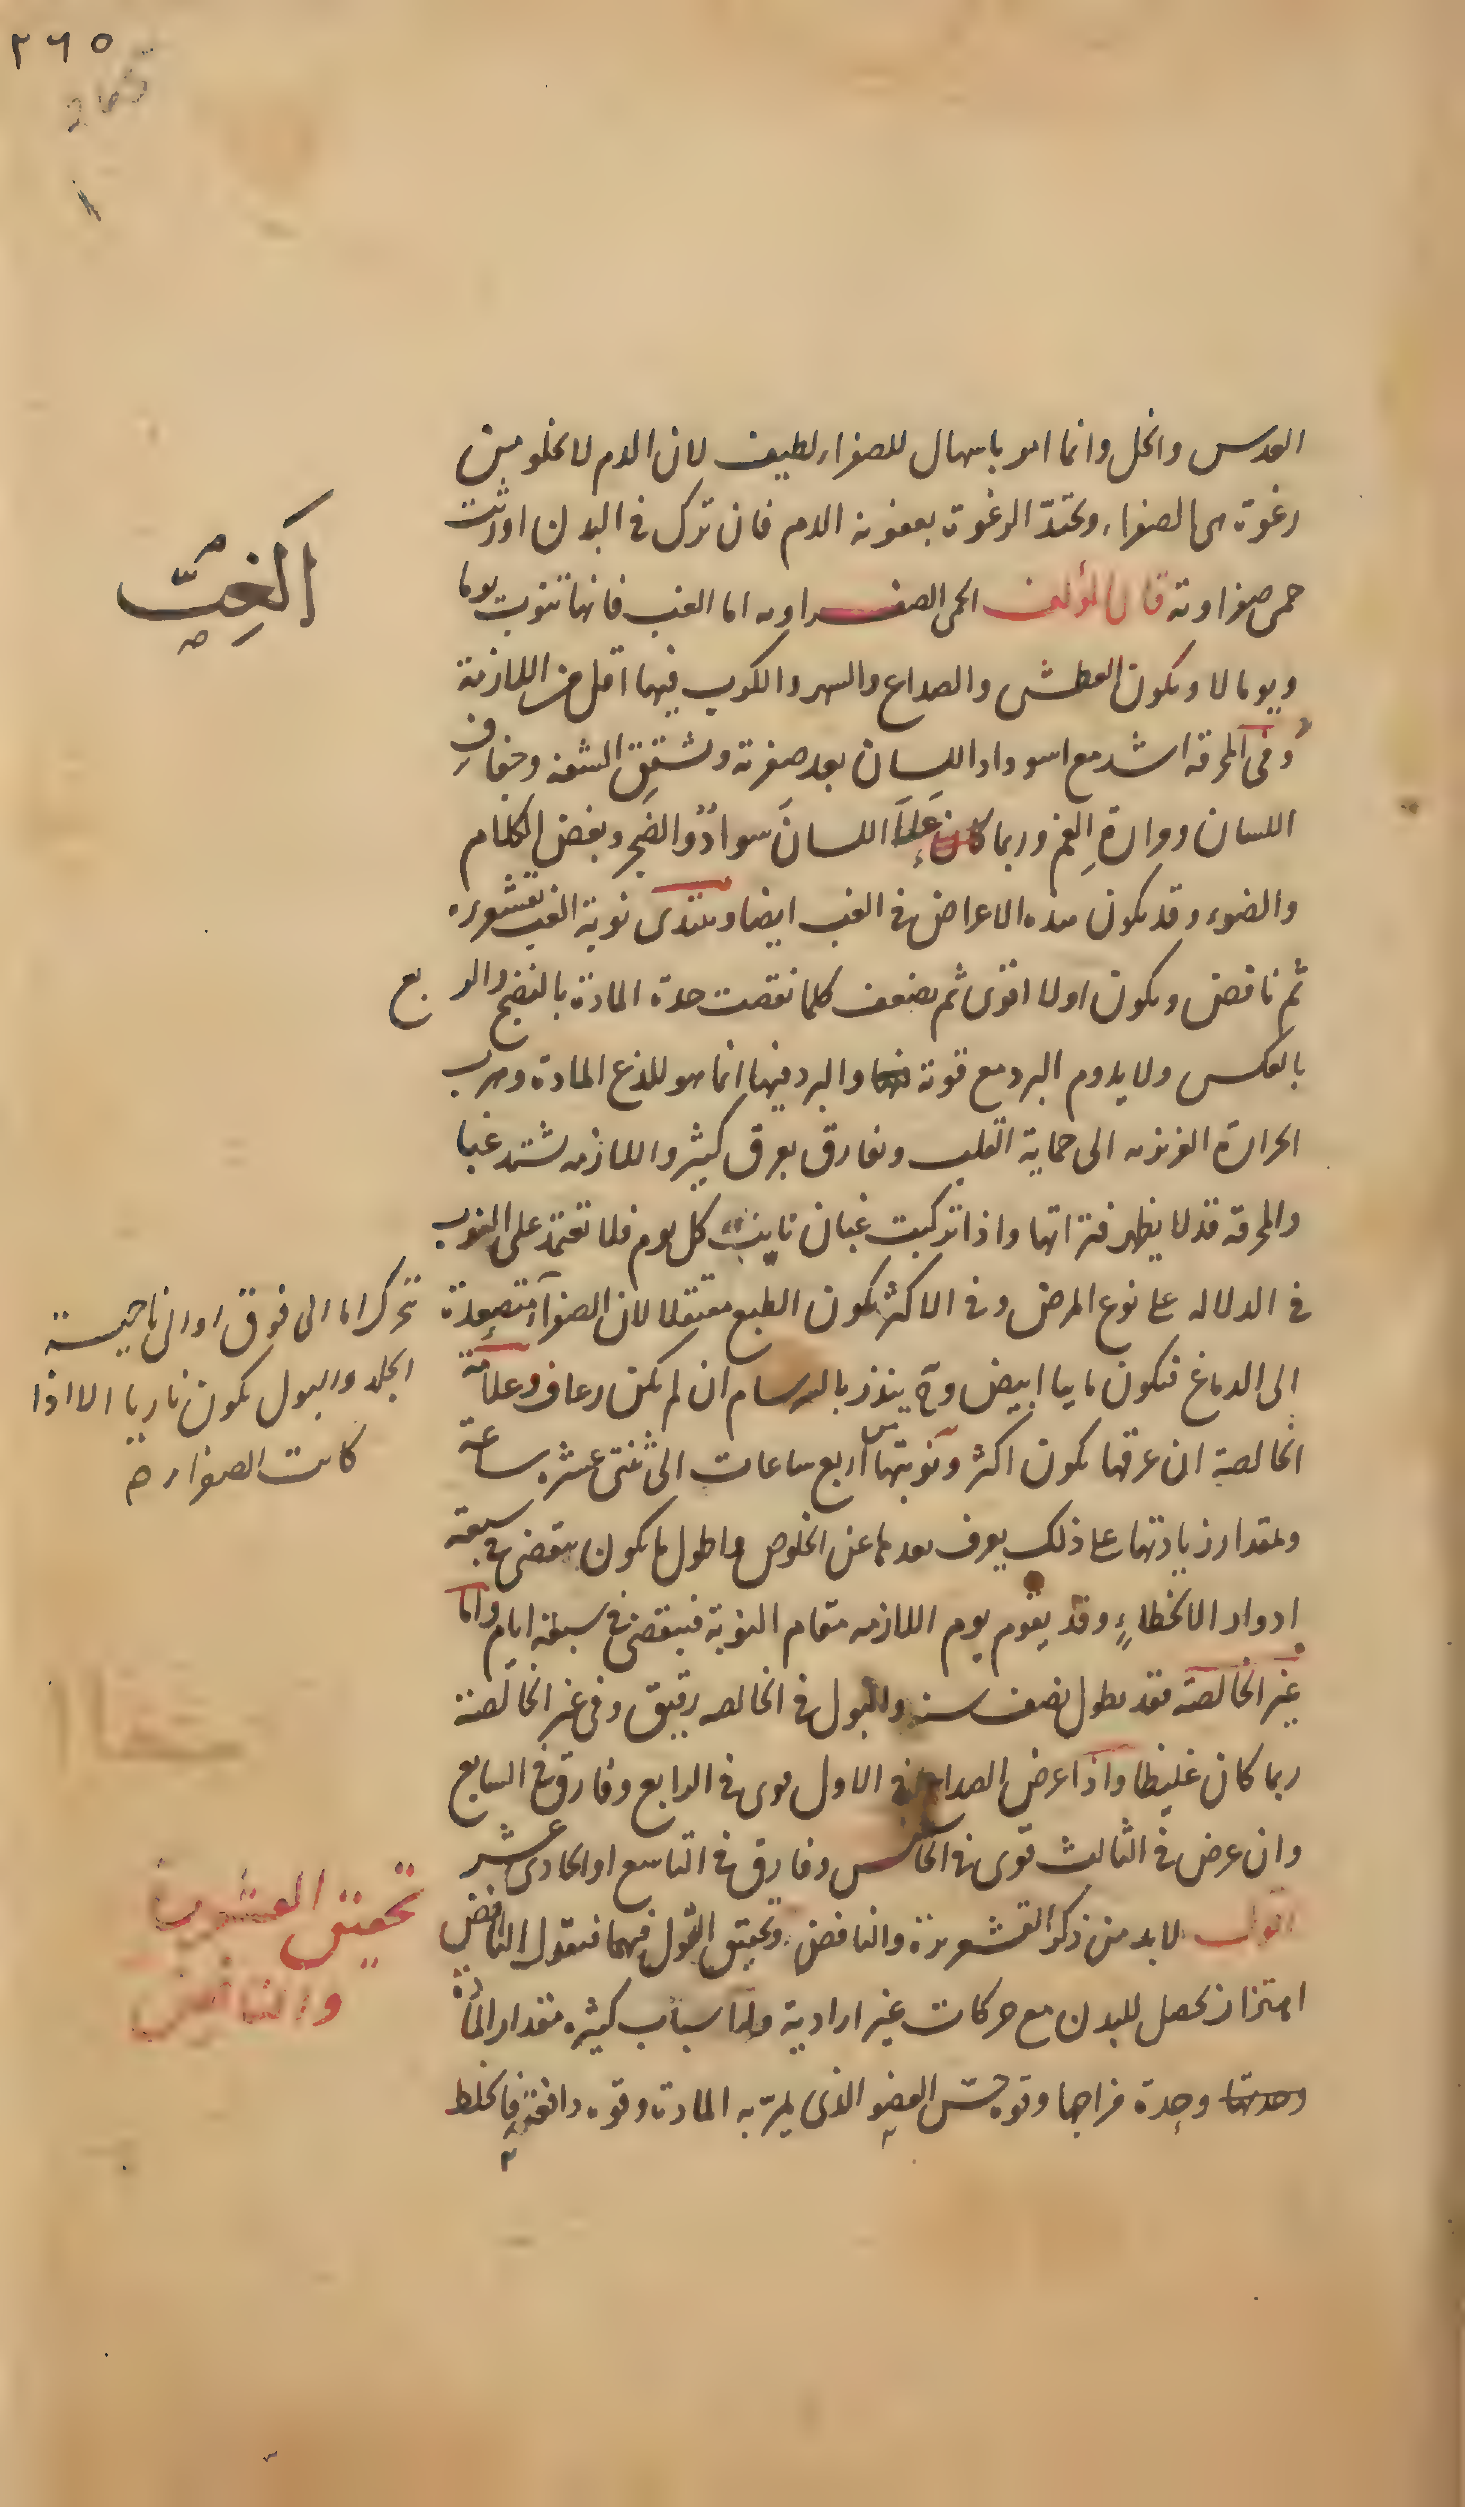 ٢٦٥
265
العدس والخل وانما امر باسهال للصفراء لطيف لان الدم لا يخلو من
رغوة هى الصفراء ويحتدّ الرغوة بعفونة الدم فان ترك فى البدن اورثت
حمى صفراوية قال المؤلف الحمى الصفراويه اما الغب فانها تنوب يوما
ويوما لا ويكون العطش والصداع والسهر والكرب فيها اقل من اللازمة
وفى المحرقة اشد مع اسوداد اللسان بعد صفرته وتشقق الشفة وجفاف
اللسان ومرارة الفم وربما كان على اللسان سوادٌ والضجر وبغض الكلام
والضوء وقد يكون هذه الاعراض فى الغب ايضا ويبتدى نوبة الغب بقشعريره
ثم نافض ويكون اولا اقوى ثم يضعف كلما نقصت حدة المادة بالنضج والربع
بالعكس ولا يدوم البرد مع قوته والبرد فيها انما هو للذع المادة وهرب
الحرارة الغريزيه الى حماية القلب ويفارق بعرق كثير واللازمه تشتد غبا
والمحرقة قد لا يظهر فتراتها واذا تركبت غبان نابت كل يوم فلا تعتمد على النوب
فى الدلاله على نوع المرض وفى الاكثر يكون الطبع معتقلا لان الصفراء متصعدة
الى الدماغ فيكون مايبا ابيض وح ينذر بالسرسام ان لم يكن رعاف وعلامة
الخالصة ان عرقها يكون اكثر ونوبتها من اربع ساعات الى ثنتى عشره ساعة
ولمقدار زيادتها على ذلك يعرف بعدها عن الخلوص واطول ما يكون ينقضى فى سبعة
ادوار الا لخطاءٍ وقد يقوم يوم اللازمه مقام النوبة فينقضى فى سبعة ايام واما
غير الخالصة فقد يطول نصف سنه والبول فى الخالصه رقيق وفى غير الخالصة
ربما كان غليظا واذا عرض الصداع فى الاول قوى فى الرابع وفارق فى السابع
وان عرض فى الثالث قوى فى الخامس وفارق فى التاسع او الحادى عشر
اقول لابد من ذكر القشعريرة والنافض وتحقيق القول فيهما فنقول النافض
اهتزاز يحصل للبدن مع حركات غير ارادية ولها سباب كثيره مقدار المادة
وحدتها وحدة مزاجها وقوة حسّ العضو الذى يمرّ به المادة وقوه دافعته فالخلط
اَلغِبّ
تحرك اما الى فوق او الى ناحية
الجلد والبول يكون ناريا الا اذا
كانت الصفراء
تحقيق القشعريرة
والنافض